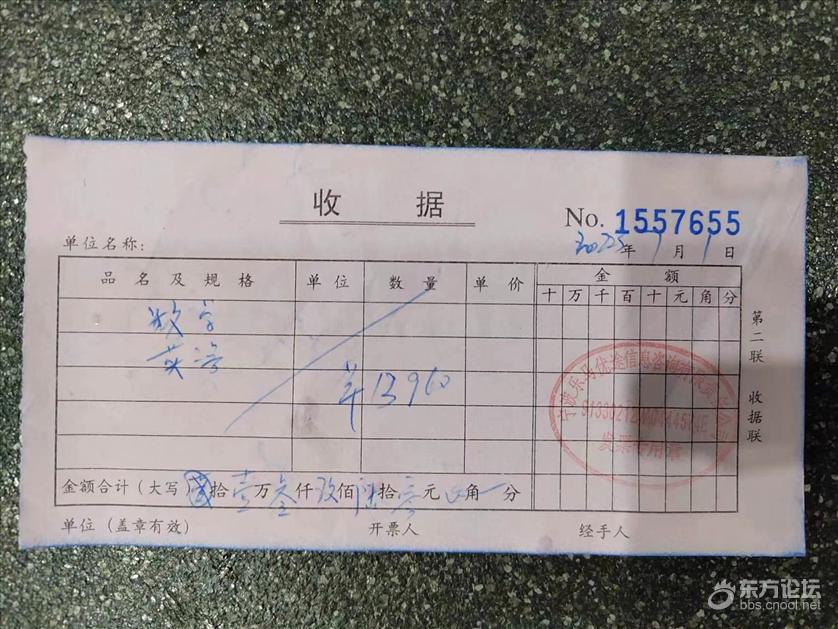 收 据
No. 1557655
单位名称:
年 月 1 日
品名及规格 单位 数量 单价 金额
十 万 千 百 十 元 角 分
数学
英语
¥13960
第二联 收据联
发票专用章
金额合计（大写） 拾 壹 万 叁 仟 玖 佰 陆 拾 零 元 角 分
单位（盖章有效） 开票人 经手人
东方论坛
bbs.cnool.net